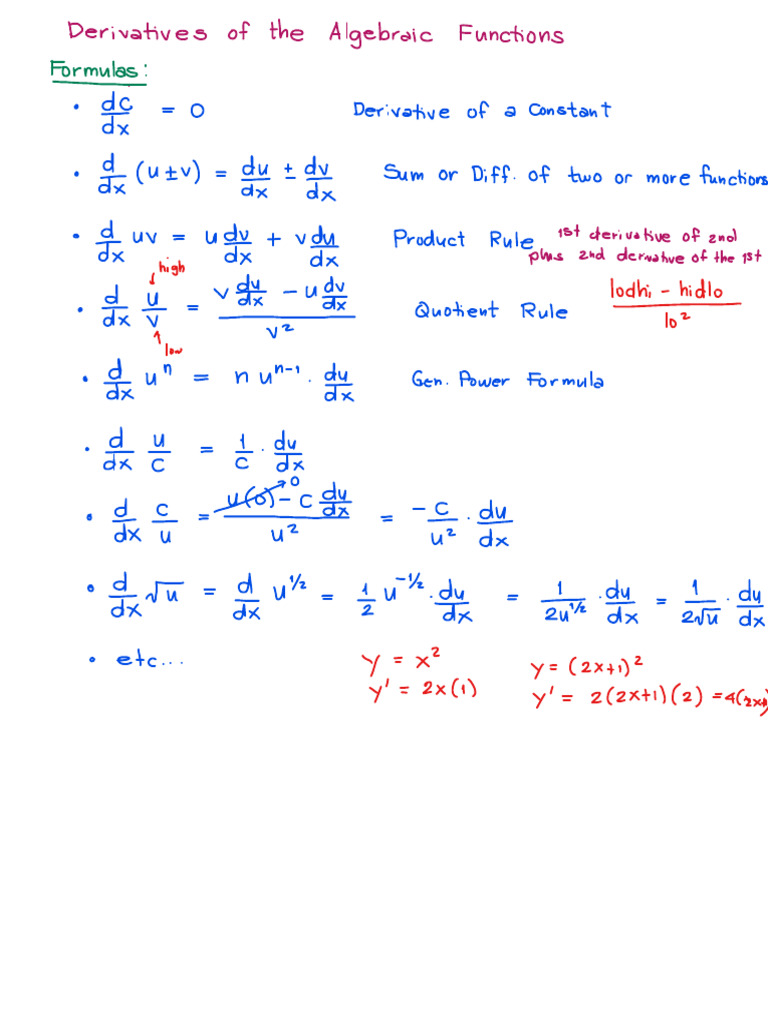 Derivatives of the Algebraic Functions
Formulas:
• dc/dx = 0 Derivative of a Constant
• d/dx (u ± v) = du/dx ± dv/dx Sum or Diff. of two or more functions
• d/dx uv = u dv/dx + v du/dx Product Rule 1st derivative of 2nd
plus 2nd derivative of the 1st
high
• d/dx u/v = (v du/dx − u dv/dx)/v² Quotient Rule lodhi - hidlo/lo²
low
• d/dx uⁿ = n uⁿ⁻¹ · du/dx Gen. Power Formula
• d/dx u/c = 1/c · du/dx
• d/dx c/u = (u(0) − c du/dx)/u² = −c/u² · du/dx
0
• d/dx √u = d/dx u^1/2 = 1/2 u^−1/2 · du/dx = 1/2u^1/2 · du/dx = 1/2√u · du/dx
• etc...
y = x² y = (2x+1)²
y' = 2x(1) y' = 2(2x+1)(2) = 4(2x+